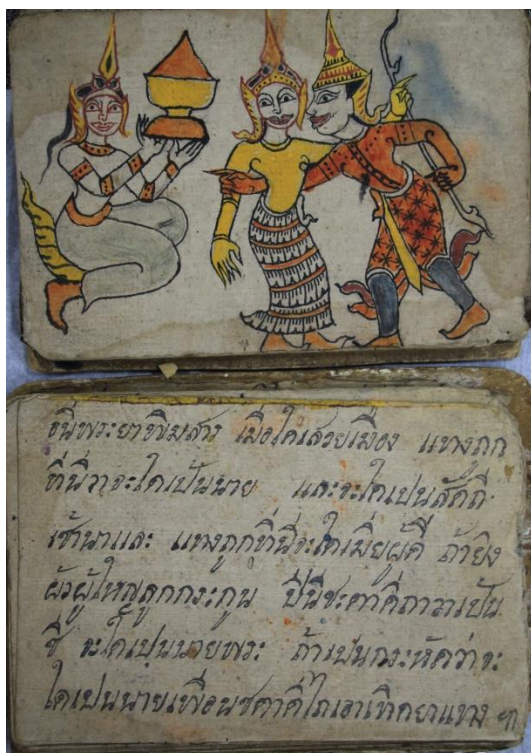 ธนี่พระยาพิมสาร เมื่อใดเสวยเมือง แทงถูก
ที่นี่ว่าจะใดเป็นนาย และจะใดเปนสัคดี
เช้านาและ แทงถูกที่นี่จะใดเมียผู้ดี ถ้ายิง
ผัวผู้ใหญลูกกระกูน ปีนี้ชะตาดีถาวาเปัน
ชี จะใดเปนนายพระ ถ้าเปนกระหัดว่าจะ
ใดเปนนายเพื่อนชตาดี เทิกยาแทง